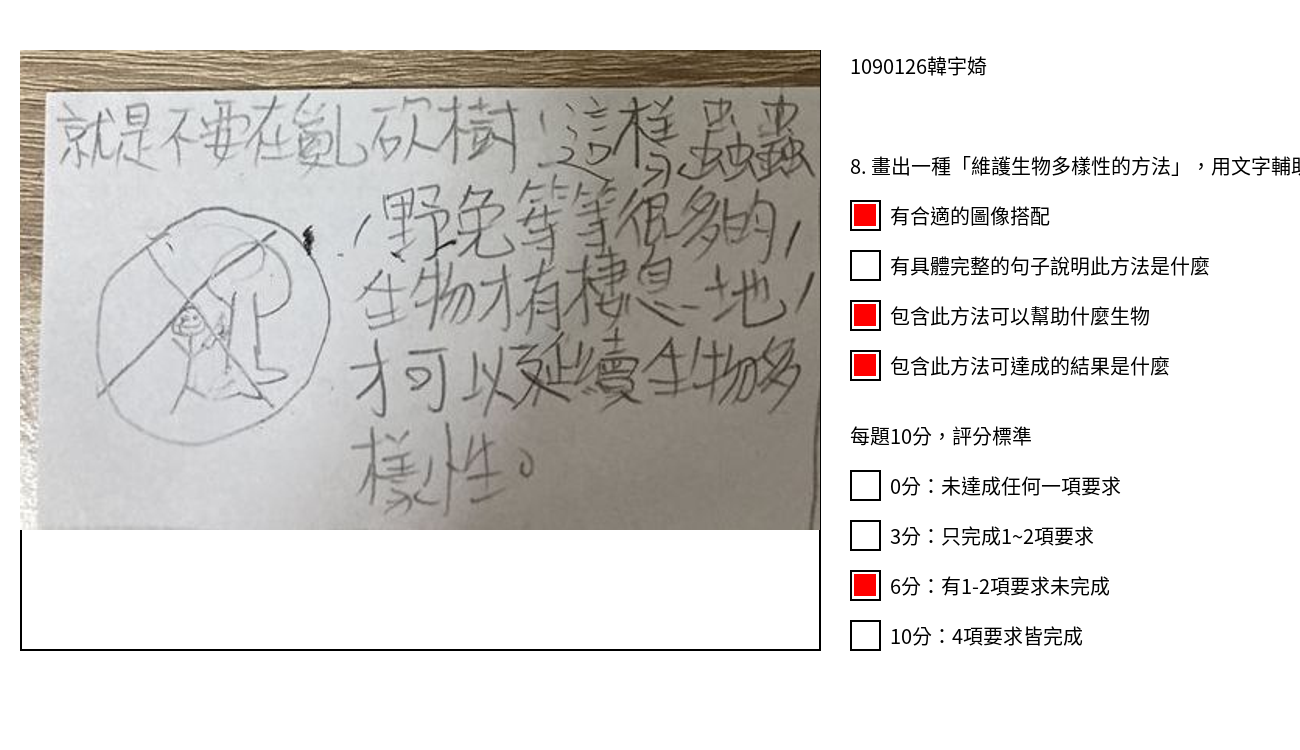 就是不要在亂砍樹，這樣蟲蟲
，野兔等等很多的，
生物才有棲息地，
才可以延續生物多
樣性。
1090126韓宇婍
8. 畫出一種「維護生物多樣性的方法」，用文字輔助
有合適的圖像搭配
有具體完整的句子說明此方法是什麼
包含此方法可以幫助什麼生物
包含此方法可達成的結果是什麼
每題10分，評分標準
0分：未達成任何一項要求
3分：只完成1~2項要求
6分：有1-2項要求未完成
10分：4項要求皆完成